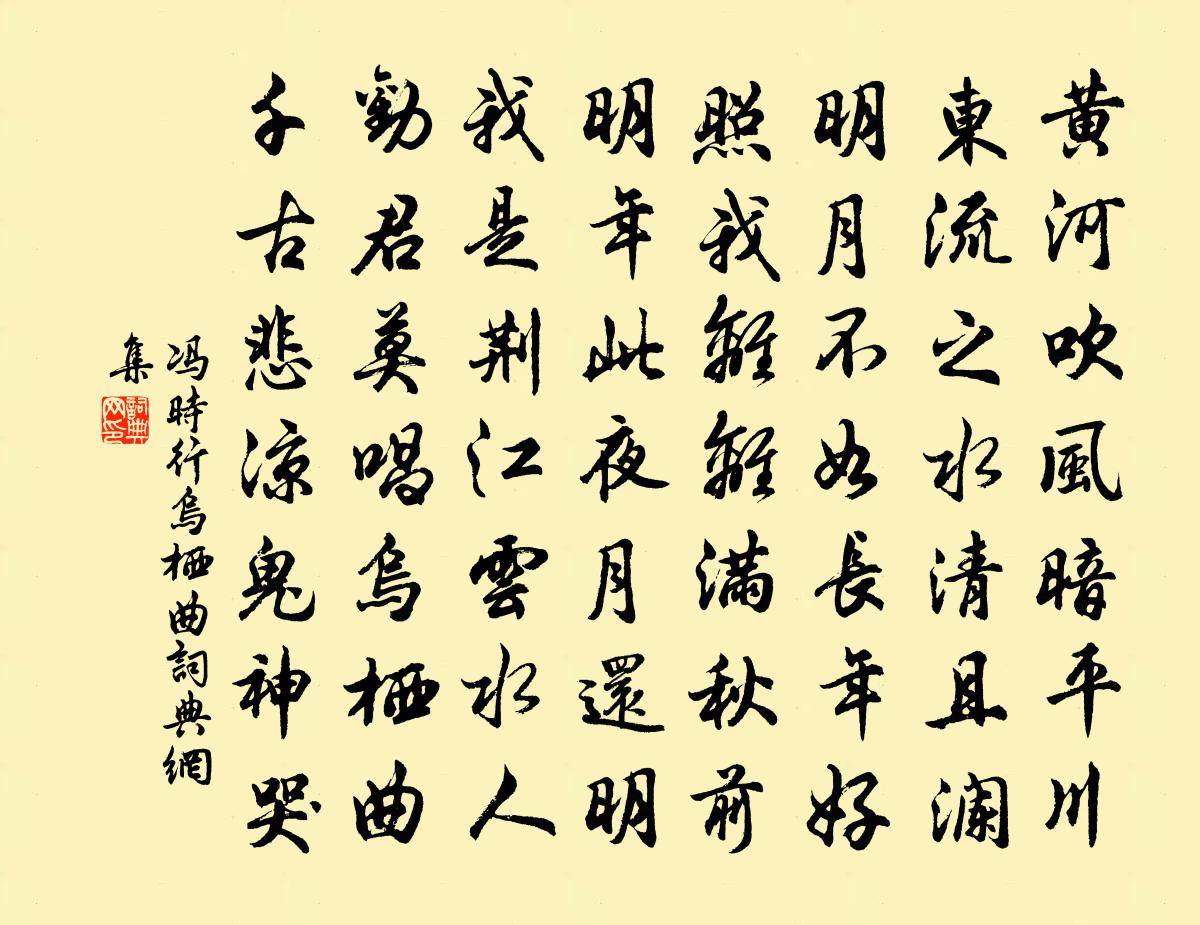 黄河吹風暗平川
東流之水清且瀾
明月不如長年好
照我離離滿秋前
明年此夜月還明
我是荆江雲水人
勸君莫唱烏栖曲
千古悲凉鬼神哭
冯時行烏栖曲詞典網
集
詞典
网印